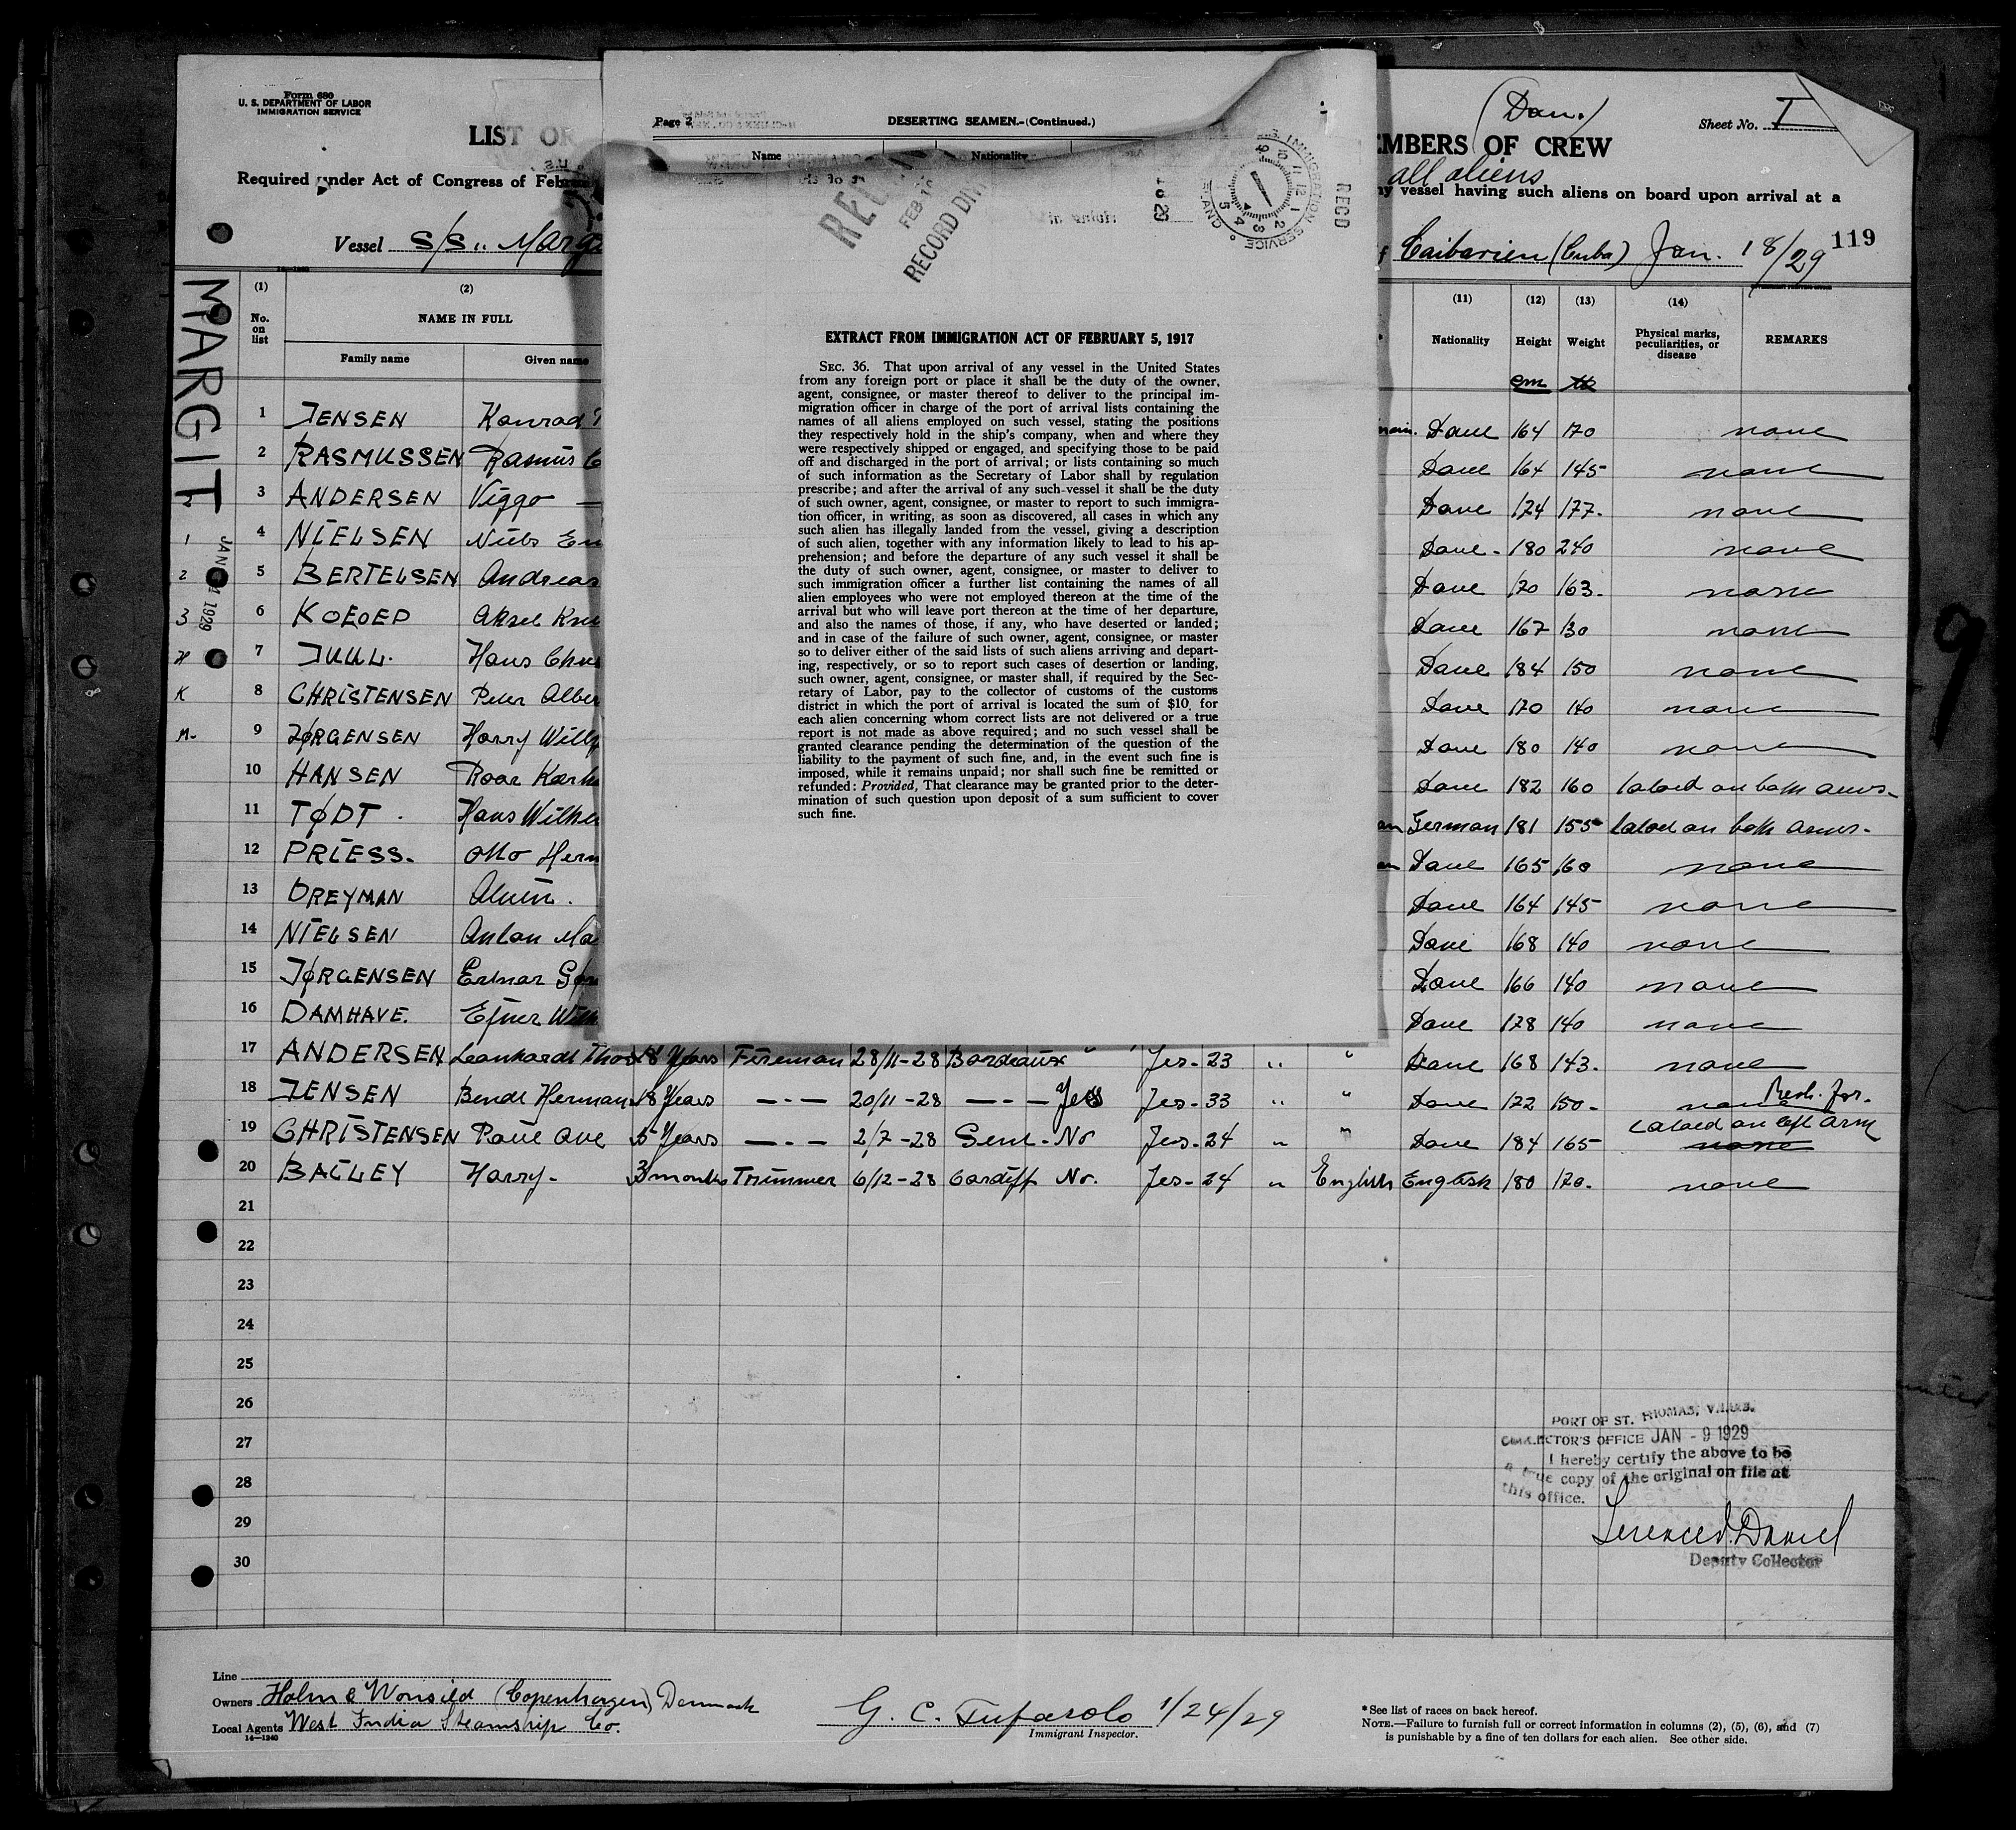 Form 680
U. S. DEPARTMENT OF LABOR
IMMIGRATION SERVICE
LIST OF
Required under Act of Congress of
Vessel S/S. Marg
Page 2 DESERTING SEAMEN.—(Continued.)
Name Nationality
FEB
RECORD DIV
IMMIGRATION SERVICE
RECD
(Dan.)
Sheet No. I
EMBERS OF CREW
all aliens
ny vessel having such aliens on board upon arrival at a
Caibarien (Cuba) Jan. 18/29 119
MARGIT
JAN 1929
EXTRACT FROM IMMIGRATION ACT OF FEBRUARY 5, 1917
SEC. 36. That upon arrival of any vessel in the United States
from any foreign port or place it shall be the duty of the owner,
agent, consignee, or master thereof to deliver to the principal im-
migration officer in charge of the port of arrival lists containing the
names of all aliens employed on such vessel, stating the positions
they respectively hold in the ship's company, when and where they
were respectively shipped or engaged, and specifying those to be paid
off and discharged in the port of arrival; or lists containing so much
of such information as the Secretary of Labor shall by regulation
prescribe; and after the arrival of any such vessel it shall be the duty
of such owner, agent, consignee, or master to report to such immigra-
tion officer, in writing, as soon as discovered, all cases in which any
such alien has illegally landed from the vessel, giving a description
of such alien, together with any information likely to lead to his ap-
prehension; and before the departure of any such vessel it shall be
the duty of such owner, agent, consignee, or master to deliver to
such immigration officer a further list containing the names of all
alien employees who were not employed thereon at the time of the
arrival but who will leave port thereon at the time of her departure,
and also the names of those, if any, who have deserted or landed;
and in case of the failure of such owner, agent, consignee, or master
so to deliver either of the said lists of such aliens arriving and depart-
ing, respectively, or so to report such cases of desertion or landing,
such owner, agent, consignee, or master shall, if required by the Sec-
retary of Labor, pay to the collector of customs of the customs
district in which the port of arrival is located the sum of $10, for
each alien concerning whom correct lists are not delivered or a true
report is not made as above required; and no such vessel shall be
granted clearance pending the determination of the question of the
liability to the payment of such fine, and, in the event such fine is
imposed, while it remains unpaid; nor shall such fine be remitted or
refunded: Provided, That clearance may be granted prior to the deter-
mination of such question upon deposit of a sum sufficient to cover
such fine.
(1) (2) (11) (12) (13) (14)
No. on list NAME IN FULL Nationality Height Weight Physical marks, peculiarities, or disease REMARKS
Family name Given name
cm
1 JENSEN Konrad Dane 164 170 none
2 RASMUSSEN Rasmus Dane 164 145 none
3 ANDERSEN Viggo Dane 174 177 none
4 NIELSEN Niels Dane 180 240 none
5 BERTELSEN Andreas Dane 170 163 none
6 KOEOED Aksel Dane 167 130 none
7 JUUL. Hans Dane 184 150 none
8 CHRISTENSEN Peter Alber Dane 170 140 none
9 JØRGENSEN Harry Willy Dane 180 140 none
10 HANSEN Roar Dane 182 160 tatoed on both arms
11 TØDT Hans German 181 155 tatoed on both arms
12 PRIESS. Otto Herm Dane 165 160 none
13 DREYMAN Alvin. Dane 164 145 none
14 NIELSEN Anton Ma Dane 168 140 none
15 JØRGENSEN Dane 166 140 none
16 DAMHAVE. Ejner Dane 178 140 none
17 ANDERSEN Leonhardt 8 Years Fireman 28/11-28 Bordeaux " Yes 23 " " Dane 168 143 none
18 JENSEN Bendt Herman 18 Years —·— 20/11-28 —·— Yes Yes 33 " " Dane 172 150 none
19 CHRISTENSEN 5 Years —·— 2/7-28 Gent No Yes 24 " " Dane 184 165 tatoed on left arm none
20 BAILEY Harry 3 months Trimmer 6/12-28 Cardiff No. Yes 24 " English English 180 170 none
21
22
23
24
25
26
27
28
29
30
PORT OF ST. THOMAS, V.I.U.S.
COLLECTOR'S OFFICE JAN - 9 1929
I hereby certify the above to be
a true copy of the original on file at
this office.
Deputy Collector
Line
Owners Holm & Wonsild (Copenhagen) Denmark
Local Agents West India Steamship Co.
14—1240
G. C. Tufarolo 1/24/29
Immigrant Inspector.
*See list of races on back hereof.
NOTE.—Failure to furnish full or correct information in columns (2), (5), (6), and (7)
is punishable by a fine of ten dollars for each alien. See other side.
9